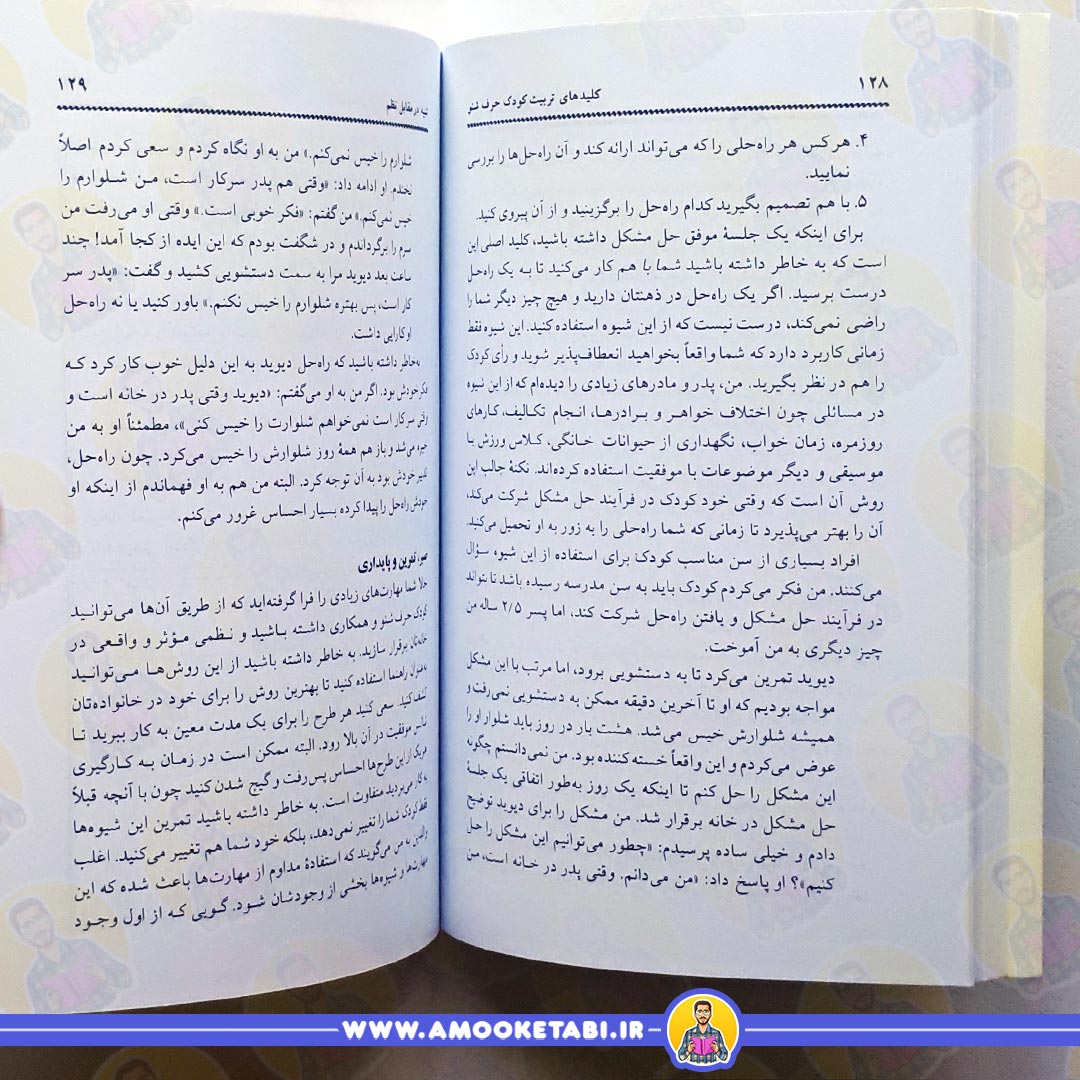 ۱۲۸
کلیدهای تربیت کودک حرف شنو
۴. هر کس هر راه‌حلی را که می‌تواند ارائه کند و آن راه‌حل‌ها را بررسی
نمایید.
۵. با هم تصمیم بگیرید کدام راه‌حل را برگزینید و از آن پیروی کنید.
برای اینکه یک جلسهٔ موفق حل مشکل داشته باشید، کلید اصلی این
است که به خاطر داشته باشید شما با هم کار می‌کنید تا به یک راه‌حل
درست برسید. اگر یک راه‌حل در ذهنتان دارید و هیچ چیز دیگر شما را
راضی نمی‌کند، درست نیست که از این شیوه استفاده کنید. این شیوه فقط
زمانی کاربرد دارد که شما واقعاً بخواهید انعطاف‌پذیر شوید و رأی کودک
را هم در نظر بگیرید. من، پدر و مادرهای زیادی را دیده‌ام که از این شیوه
در مسائلی چون اختلاف خواهر و برادرها، انجام تکالیف، کارهای
روزمره، زمان خواب، نگهداری از حیوانات خانگی، کلاس ورزش یا
موسیقی و دیگر موضوعات با موفقیت استفاده کرده‌اند. نکتهٔ جالب این
روش آن است که وقتی خود کودک در فرآیند حل مشکل شرکت می‌کند،
آن را بهتر می‌پذیرد تا زمانی که شما راه‌حلی را به زور به او تحمیل می‌کنید.
افراد بسیاری از سن مناسب کودک برای استفاده از این شیوه سؤال
می‌کنند. من فکر می‌کردم کودک باید به سن مدرسه رسیده باشد تا بتواند
در فرآیند حل مشکل و یافتن راه‌حل شرکت کند، اما پسر ۲/۵ ساله من
چیز دیگری به من آموخت.
دیوید تمرین می‌کرد تا به دستشویی برود، اما مرتب با این مشکل
مواجه بودیم که او تا آخرین دقیقه ممکن به دستشویی نمی‌رفت و
همیشه شلوارش خیس می‌شد. هشت بار در روز باید شلوار او را
عوض می‌کردم و این واقعاً خسته کننده بود. من نمی‌دانستم چگونه
این مشکل را حل کنم تا اینکه یک روز به‌طور اتفاقی یک جلسهٔ
حل مشکل در خانه برقرار شد. من مشکل را برای دیوید توضیح
دادم و خیلی ساده پرسیدم: «چطور می‌توانیم این مشکل را حل
کنیم»؟ او پاسخ داد: «من می‌دانم. وقتی پدر در خانه است، من
۱۲۹
تنبیه در مقابل نظم
شلوارم را خیس نمی‌کنم.» من به او نگاه کردم و سعی کردم اصلاً
نخندم. او ادامه داد: «وقتی هم پدر سرکار است، من شلوارم را
خیس نمی‌کنم.» من گفتم: «فکر خوبی است.» وقتی او می‌رفت من
سرم را برگرداندم و در شگفت بودم که این ایده از کجا آمد! چند
ساعت بعد دیوید مرا به سمت دستشویی کشید و گفت: «پدر سر
کار است، پس بهتره شلوارم را خیس نکنم.» باور کنید یا نه راه‌حل
او کارایی داشت.
به‌خاطر داشته باشید که راه‌حل دیوید به این دلیل خوب کار کرد که
فکر خودش بود. اگر من به او می‌گفتم: «دیوید وقتی پدر در خانه است و
وقتی سر کار است نمی‌خواهم شلوارت را خیس کنی»، مطمئناً او به من
خیره می‌شد و باز هم همهٔ روز شلوارش را خیس می‌کرد. چون راه‌حل،
تدبیر خودش بود به آن توجه کرد. البته من هم به او فهماندم از اینکه او
خودش راه‌حل را پیدا کرده بسیار احساس غرور می‌کنم.
صبر، تمرین و پایداری
حالا شما مهارت‌های زیادی را فرا گرفته‌اید که از طریق آن‌ها می‌توانید
کودک حرف شنو و همکاری داشته باشید و نظمی مؤثر و واقعی در
خانه‌تان برقرار سازید. به خاطر داشته باشید از این روش‌ها می‌توانید
به‌عنوان راهنما استفاده کنید تا بهترین روش را برای خود در خانواده‌تان
کشف کنید. سعی کنید هر طرح را برای یک مدت معین به کار ببرید تا
شانس موفقیت در آن بالا رود. البته ممکن است در زمان به کارگیری
هر یک از این طرح‌ها احساس پس‌رفت و گیج شدن کنید چون با آنچه قبلاً
به کار می‌بردید متفاوت است. به خاطر داشته باشید تمرین این شیوه‌ها
فقط کودک شما را تغییر نمی‌دهد، بلکه خود شما هم تغییر می‌کنید. اغلب
والدین به من می‌گویند که استفادهٔ مداوم از مهارت‌ها باعث شده که این
مهارت‌ها و شیوه‌ها بخشی از وجودشان شود. گویی که از اول وجود
WWW.AMOOKETABI.IR